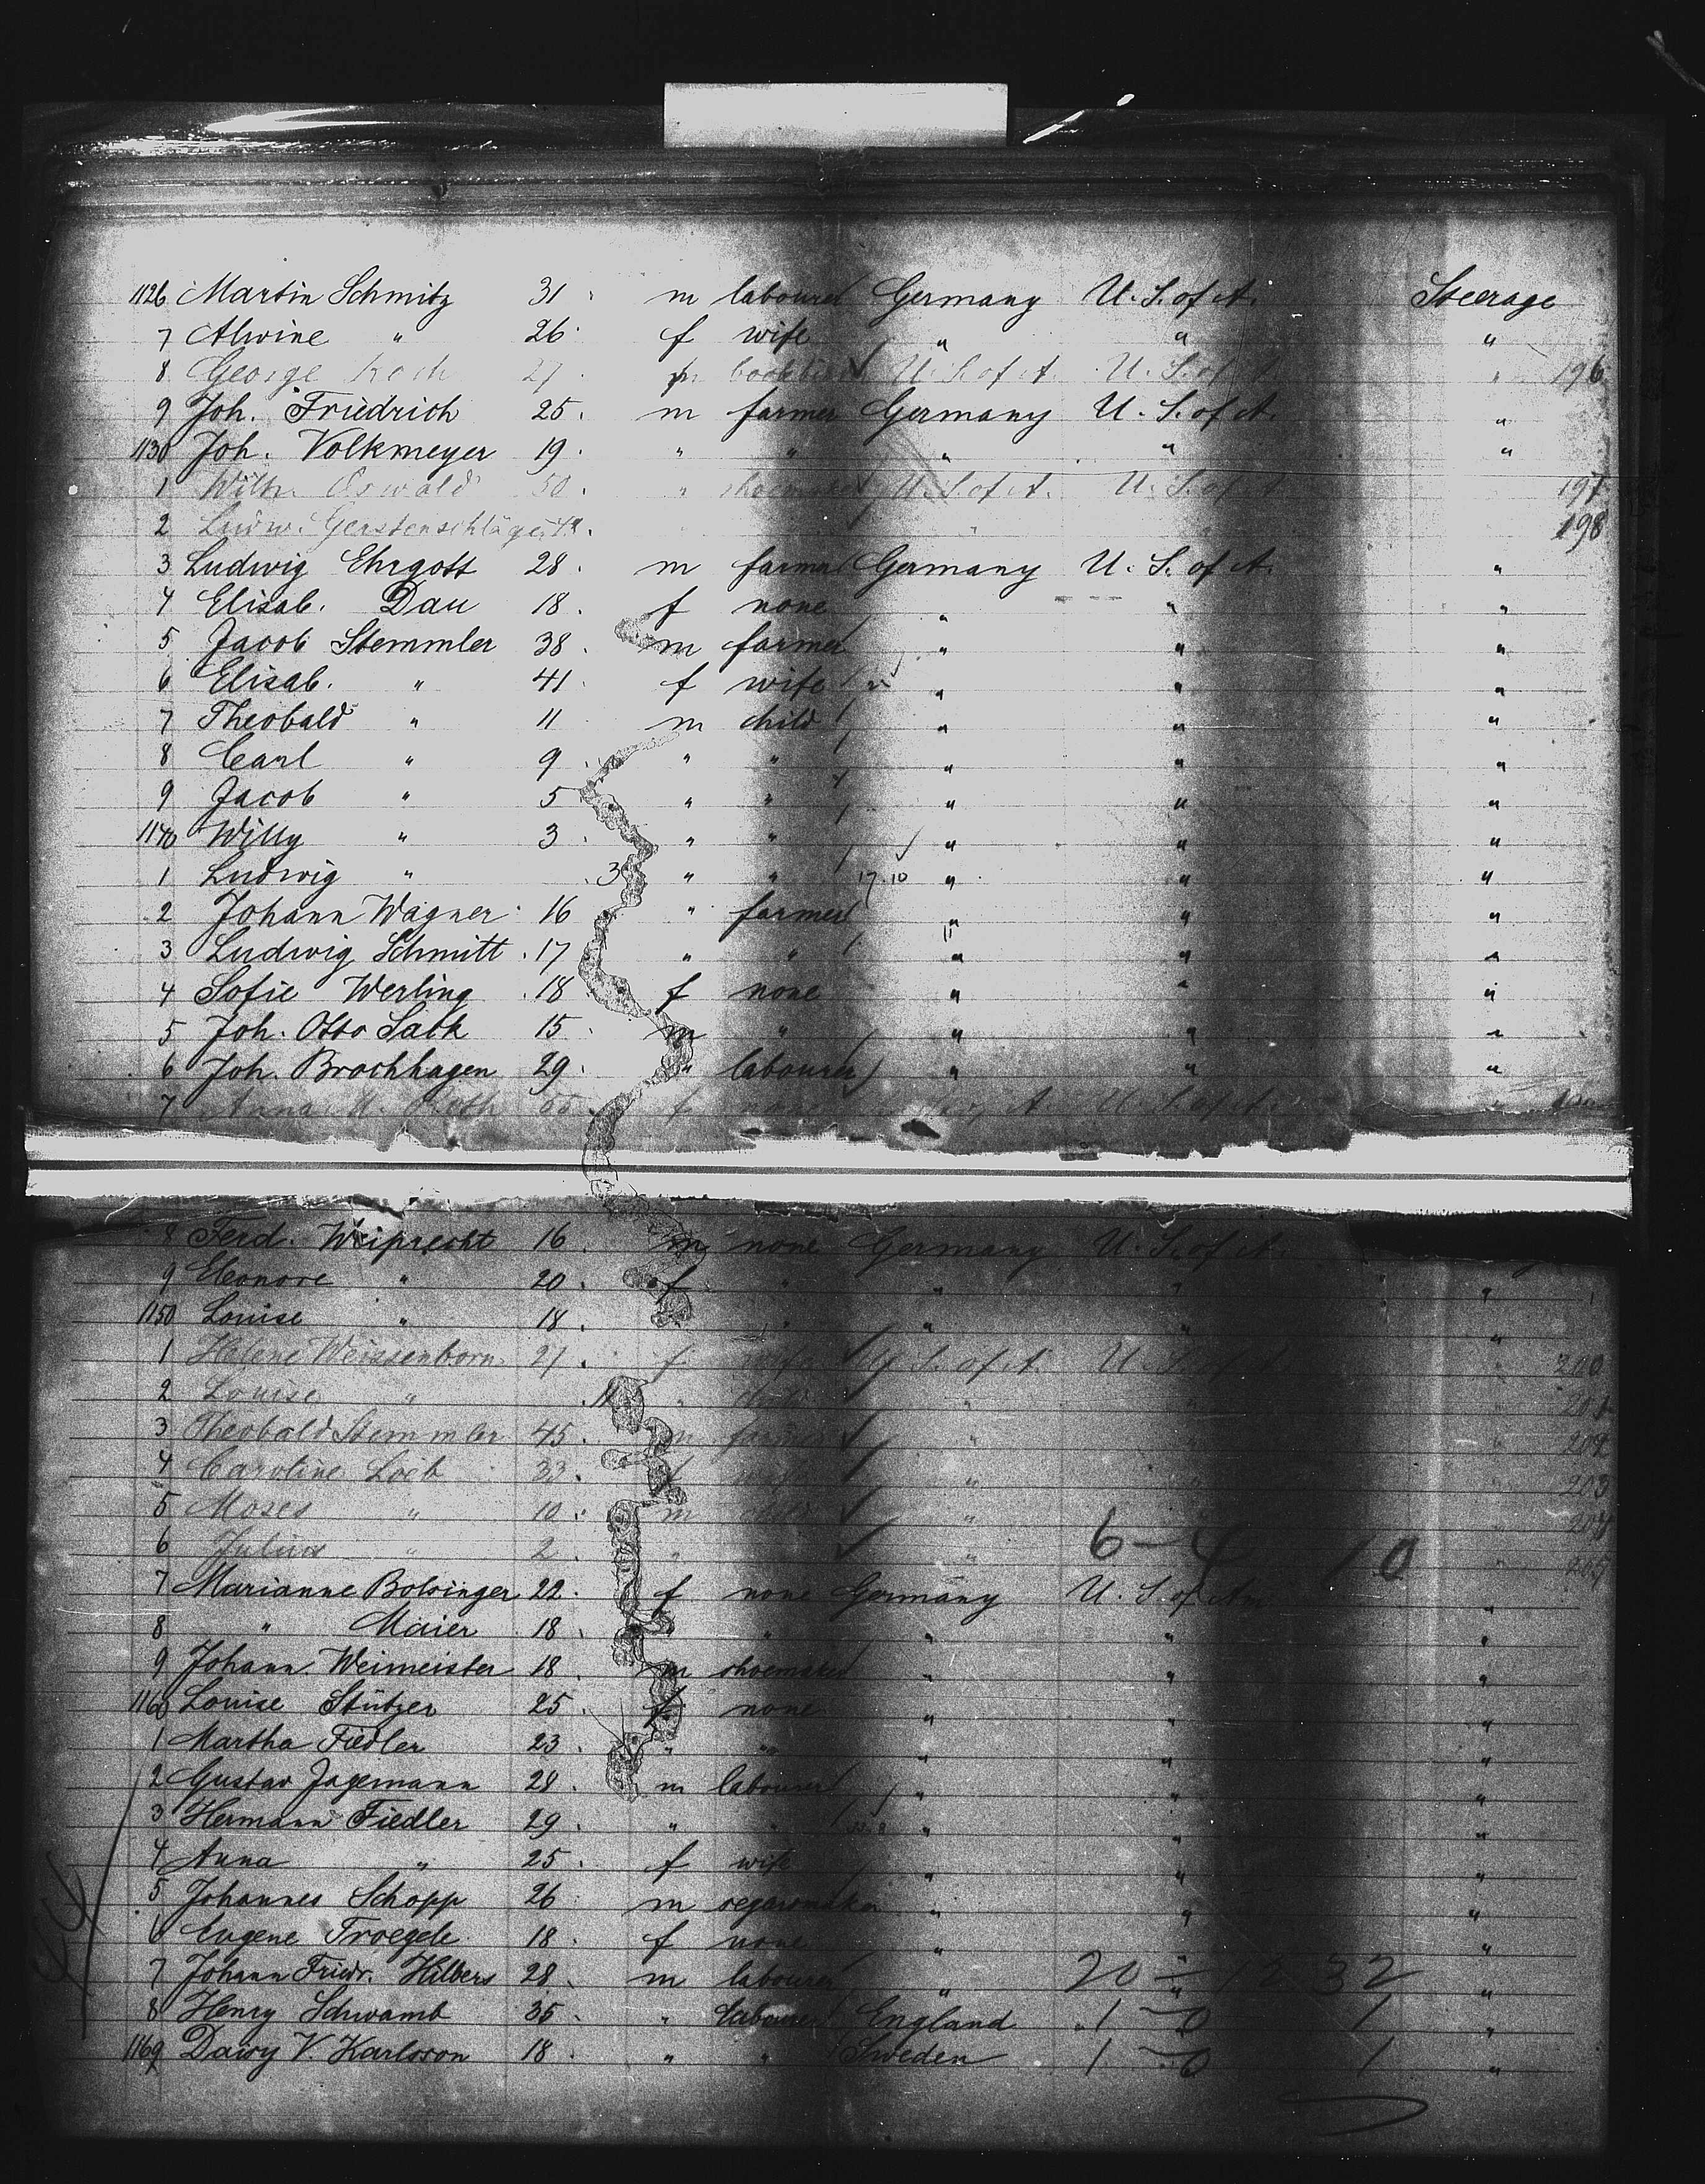 1126 Martin Schmitz 31 m labourer Germany U. S. of A. Steerage
7 Alwine " 26 f wife " " "
8 George Koch 27 m U. S. of A. U. S. of A. " 196
9 Joh. Friedrich 25 m farmer Germany U. S. of A. "
1130 Joh. Volkmeyer 19 " " " " "
1 Wilh. Oswald 50 " shoemaker U. S. of A. U. S. of A. 197
2 Ludw. Gerstenschläger 198
3 Ludwig Ehrgott 28 m farmer Germany U. S. of A. "
4 Elisab. Dau 18 f none " " "
5 Jacob Stemmler 38 m farmer " " "
6 Elisab. " 41 f wife " " "
7 Theobald " 11 m child " " "
8 Carl " 9 " " " " "
9 Jacob " 5 " " " " "
1140 Willy " 3 " " " " "
1 Ludwig " 3 " " 17.10 " " "
2 Johann Wagner 16 " farmer " " "
3 Ludwig Schmitt 17 " " " " "
4 Sofie Werling 18 f none " " "
5 Joh. Otto 15 m " " " "
6 Joh. Brochhagen 29 " labourer " " "
7 Anna M. Roth f none A. U. S. of A. "
8 Ferd. Weiprecht 16 m none Germany U. S. of A.
9 Eleonore " 20 f " " " "
1150 Louise " 18 " " " " "
1 Helene Weissenborn 27 f wife U. S. of A. U. S. of A. " 200
2 Louise " 11 " child " " " 201
3 Theobald Stemmler 45 m farmer " " " 202
4 Caroline Loeb 33 f wife " " " 203
5 Moses " 10 m child " " 204
6 Julius " 2 " " 6-4 10 " 205
7 Marianne Bolsinger 22 f none Germany U. S. of Am "
8 " Maier 18 " " " " "
9 Johann Weimeister 18 m shoemaker " " "
1160 Louise Stützer 25 f none " " "
1 Martha Fiedler 23 " " " " "
2 Gustav Jagemann 28 m labourer " " "
3 Hermann Fiedler 29 " " " " "
4 Anna " 25 f wife " " "
5 Johannes Schopp 26 m segarmaker " " "
6 Eugene Troegele 18 f none " " "
7 Johann Friedr. Hilbers 28 m labourer " 20 - 12 32 "
8 Henry Schwamb 35 " labourer England " 1 - 0 1 "
1169 V. Karlsson 18 " " Sweden 1 - 0 1 "